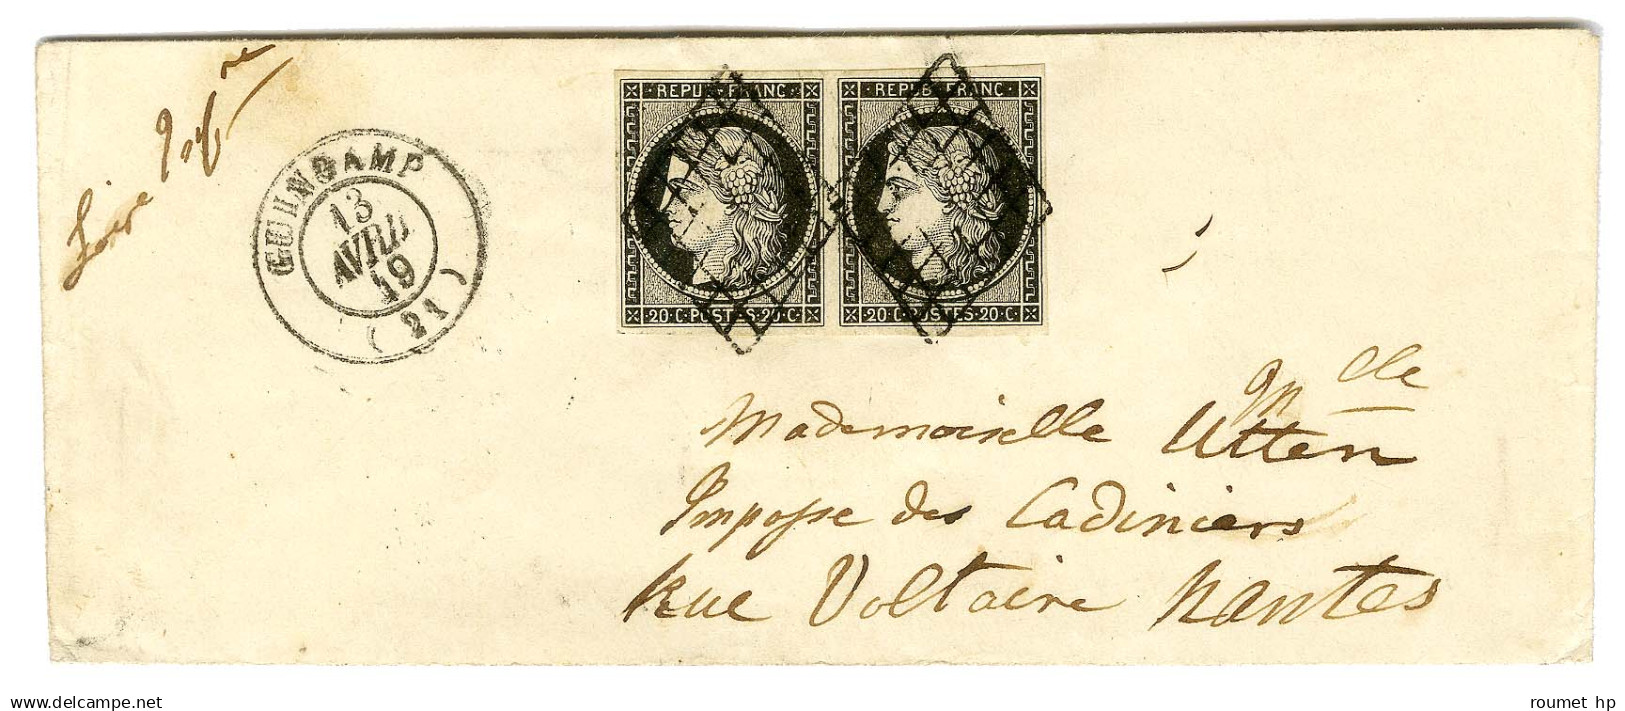 GUINGAMP
13
AVRIL
49
( 21 )
REPUB. FRANC.
20 C. POSTES. 20 C.
REPUB. FRANC.
20 C. POSTES. 20 C.
Loire Infre
Mlle
Mademoiselle Utten
Impasse des Cadiniers
Rue Voltaire Nantes
roumet hp